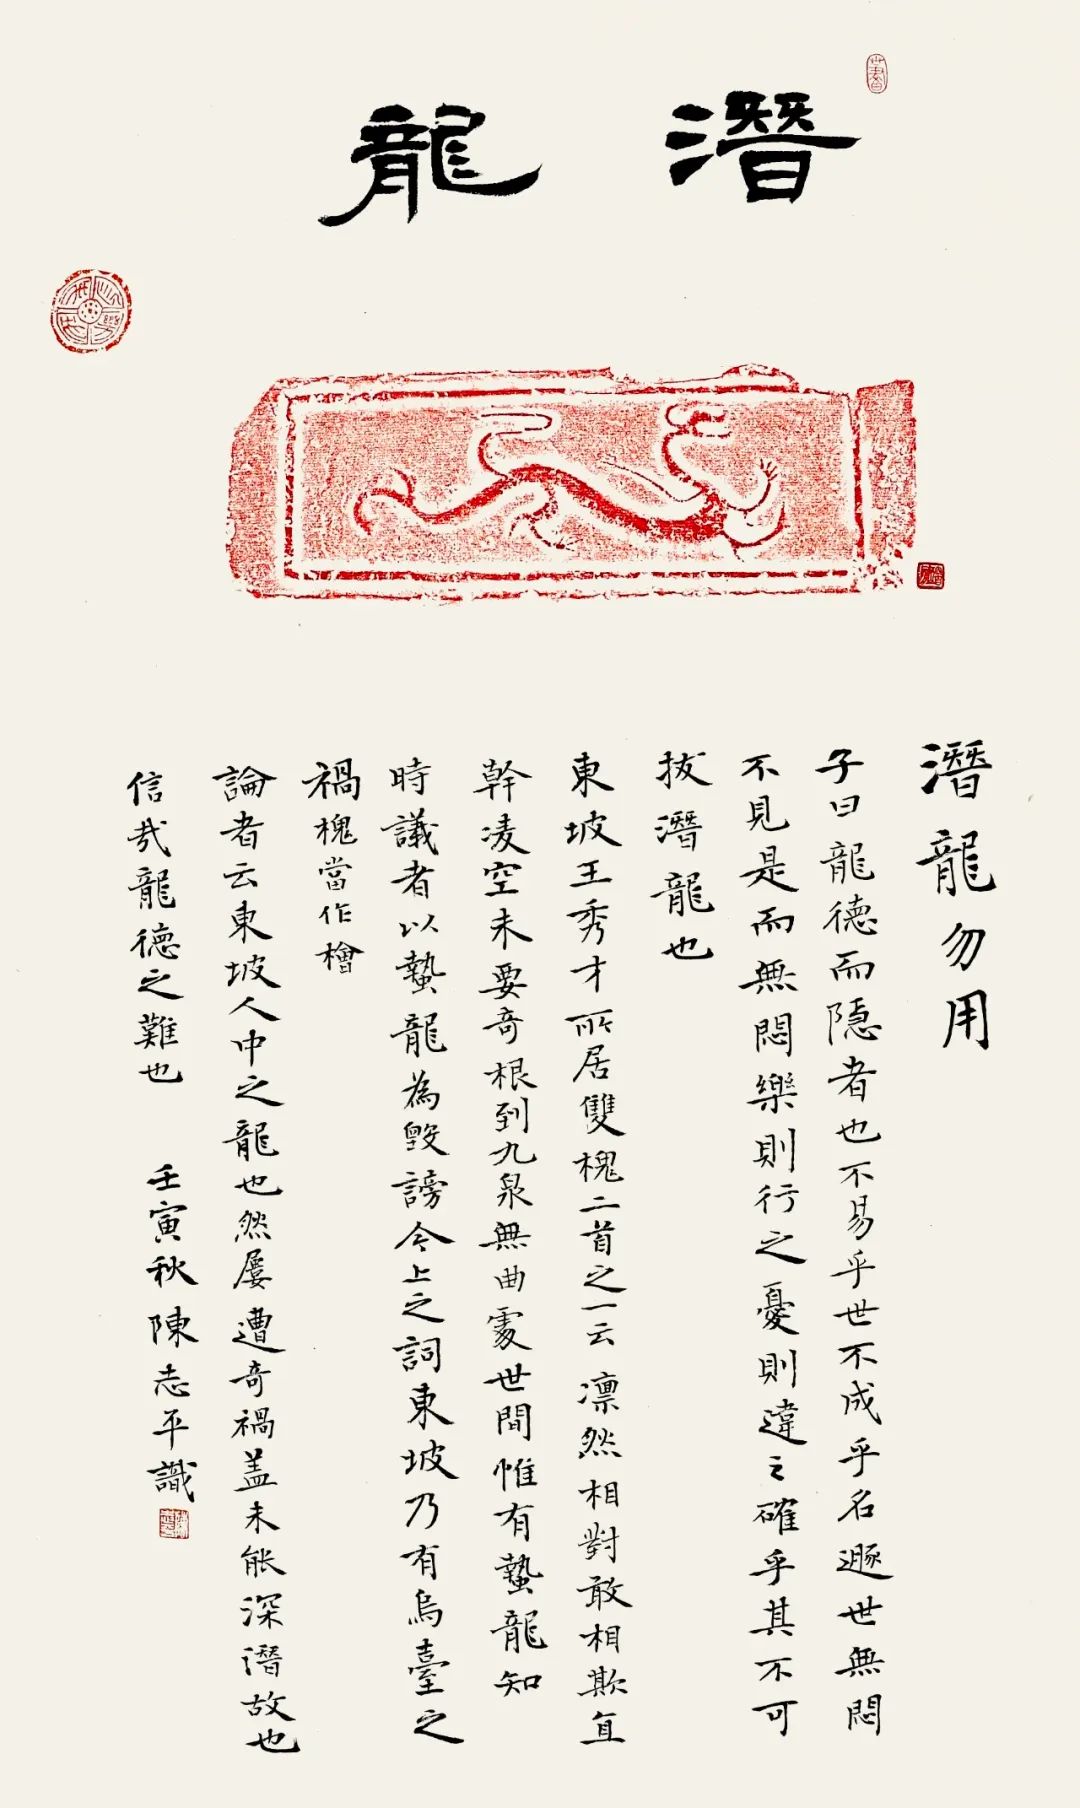 潛龍
潛龍勿用
子曰龍德而隱者也不易乎世不成乎名遯世無悶
不見是而無悶樂則行之憂則違之確乎其不可
拔潛龍也
東坡王秀才所居雙槐二首之一云凛然相對敢相欺直
幹凌空未要奇根到九泉無曲處世間惟有蟄龍知
時議者以蟄龍為毀謗今上之詞東坡乃有烏臺之
禍槐當作檜
論者云東坡人中之龍也然屢遭奇禍盖未能深潛故也
信哉龍德之難也 壬寅秋陳志平識